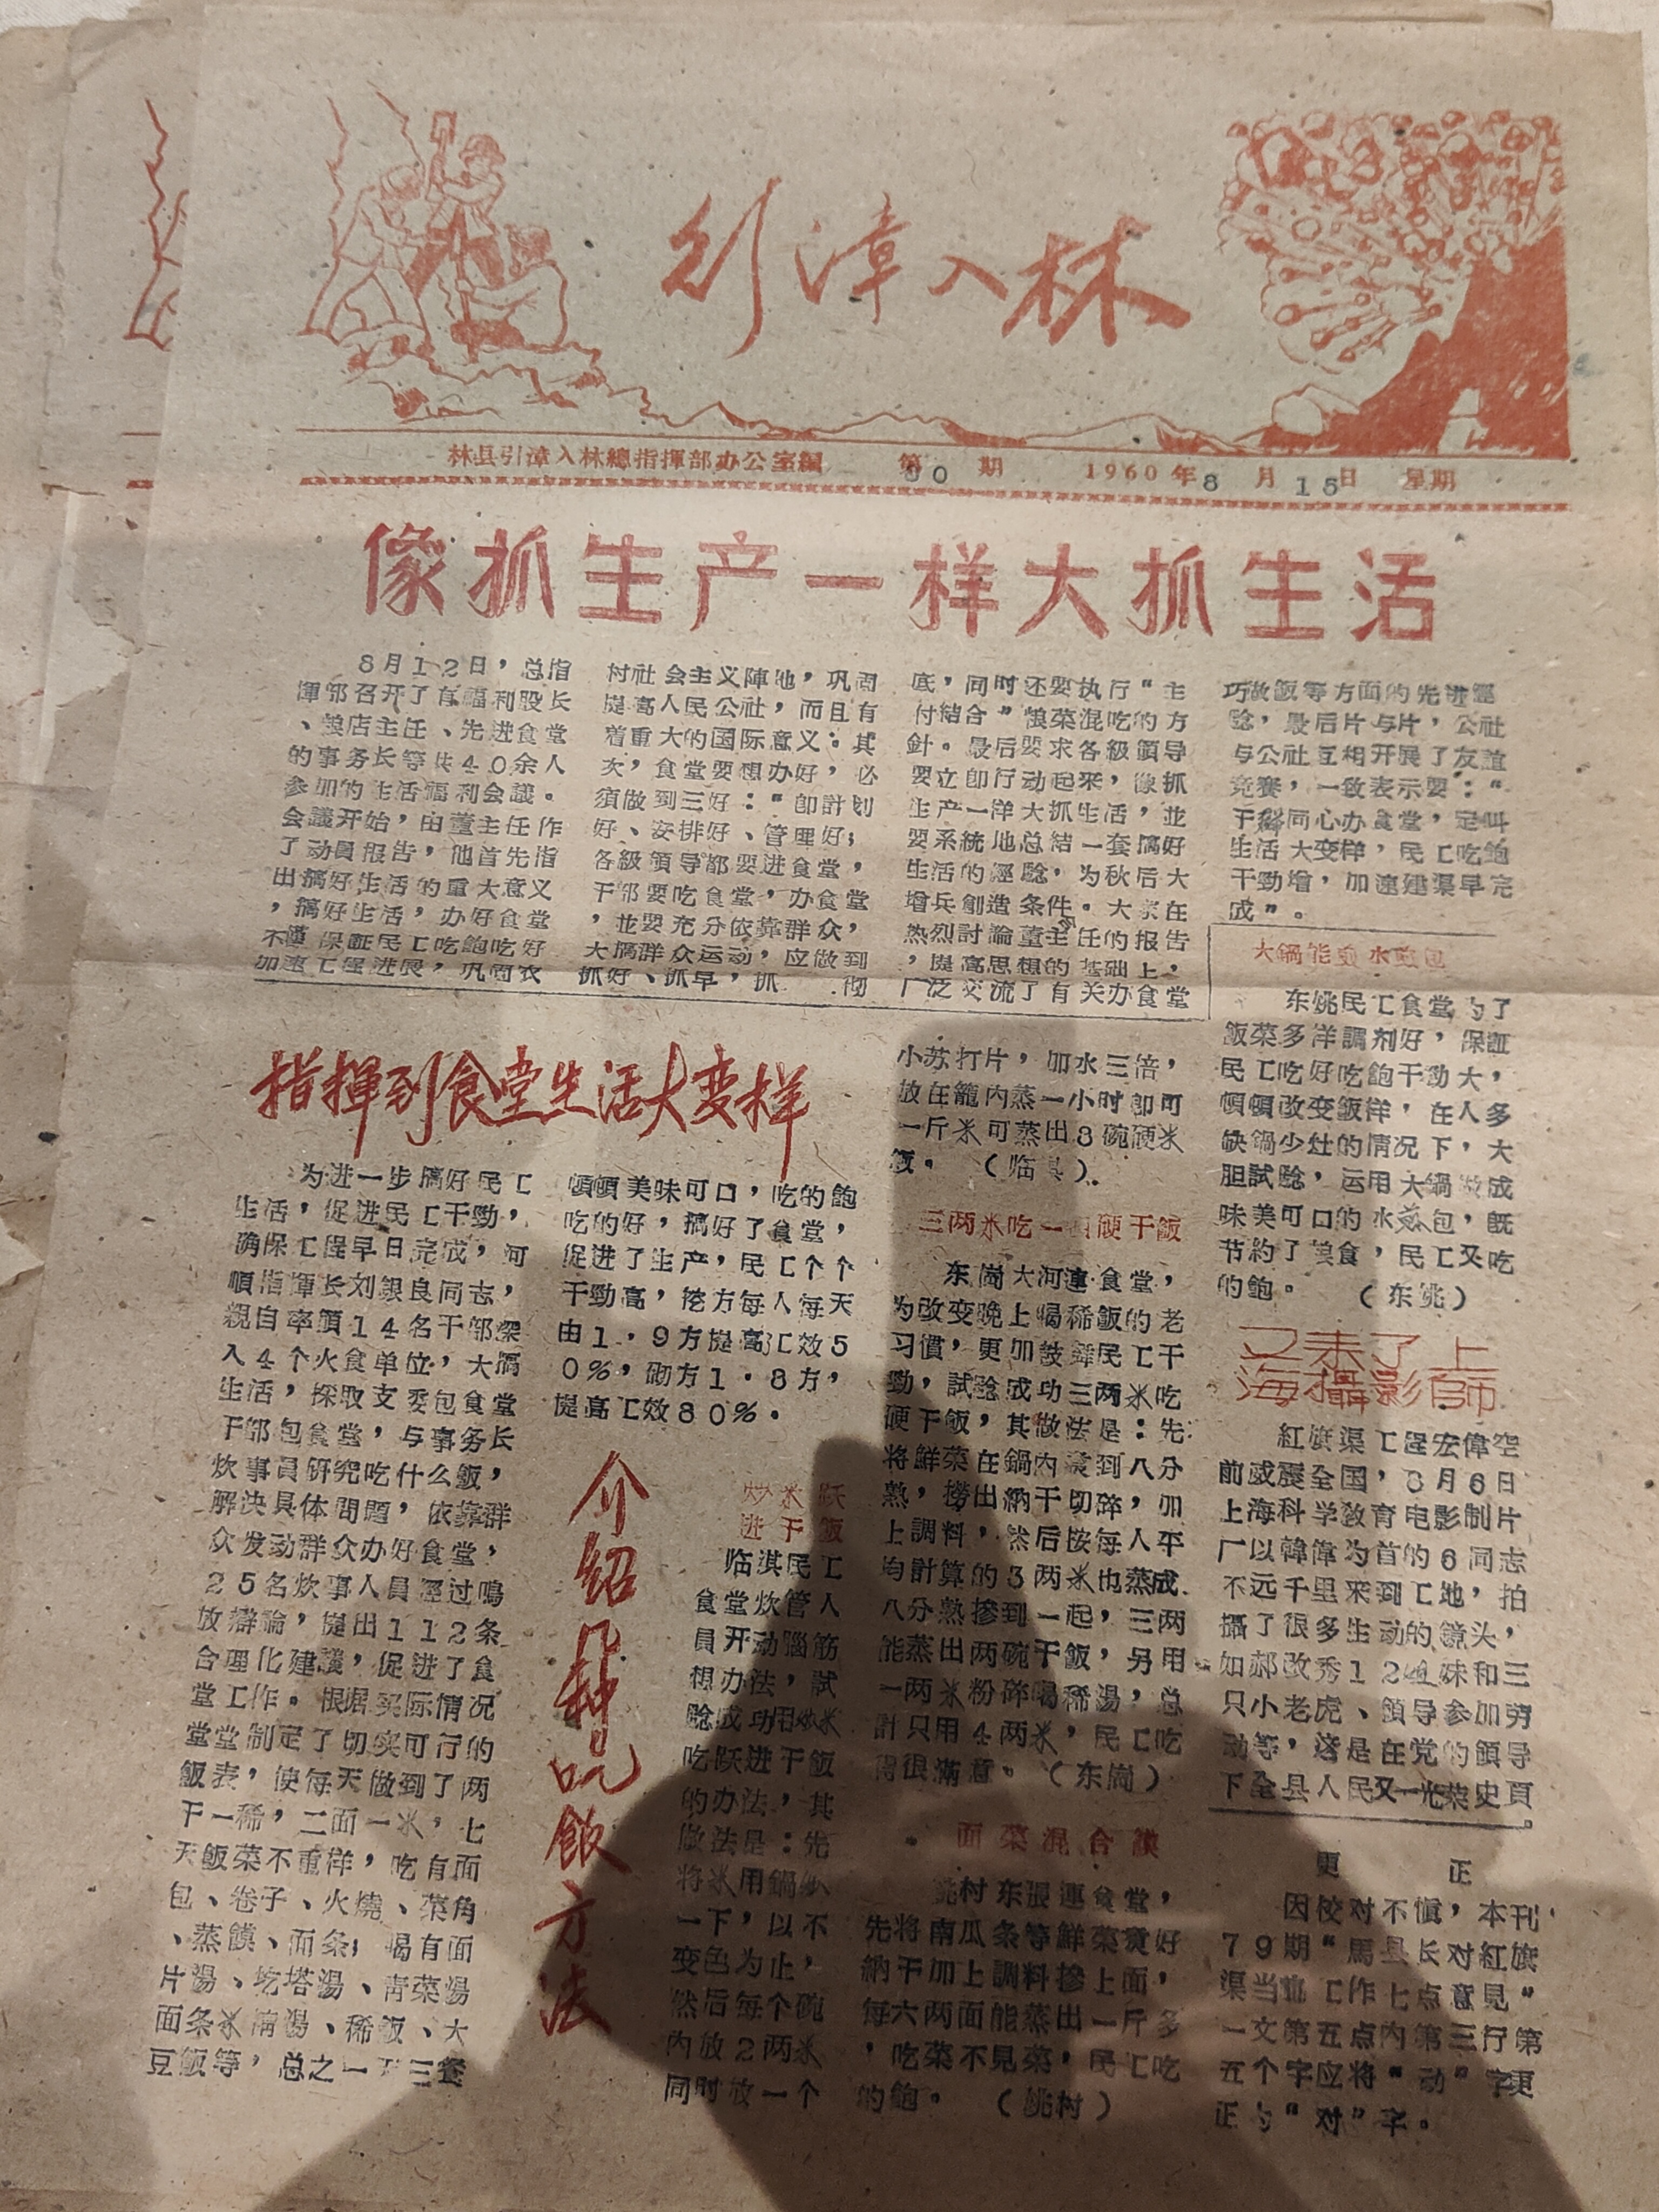 引漳入林
林县引漳入林總指揮部办公室編 第 80 期 1960年8月15日 星期
像抓生产一样大抓生活
8月12日，总指
揮部召开了有福利股长
、粮店主任、先进食堂
的事务长等共40余人
参加的生活福利会議。
会議开始，由董主任作
了动員报告，他首先指
出搞好生活的重大意义
，搞好生活，办好食堂
不僅保証民工吃飽吃好
加速工程进展，巩固农
村社会主义陣地，巩固
提高人民公社，而且有
着重大的国际意义；其
次，食堂要想办好，必
須做到三好：“即計划
好、安排好、管理好；
各級領导都要进食堂，
干部要吃食堂，办食堂
，並要充分依靠群众，
大搞群众运动，应做到
抓好、抓早，抓 彻
底，同时还要执行“主
付結合”粮菜混吃的方
針。最后要求各級領导
要立即行动起来，像抓
生产一样大抓生活，並
要系統地总結一套搞好
生活的經驗，为秋后大
增兵創造条件。大家在
热烈討論董主任的报告
，提高思想的基础上，
广泛交流了有关办食堂
巧做飯等方面的先进經
驗，最后片与片，公社
与公社互相开展了友誼
竞賽，一致表示要：“
干群同心办食堂，定叫
生活大变样，民工吃飽
干勁增，加速建渠早完
成”。
指揮到食堂生活大变样
为进一步搞好民工
生活，促进民工干勁，
确保工程早日完成，河
順指揮长刘銀良同志，
親自率領14名干部深
入4个火食单位，大搞
生活，採取支委包食堂
干部包食堂，与事务长
炊事員研究吃什么飯，
解决具体問題，依靠群
众发动群众办好食堂，
25名炊事人員經过鳴
放辯論，提出112条
合理化建議，促进了食
堂工作。根据实际情况
堂堂制定了切实可行的
飯表，使每天做到了两
干一稀，二面一米，七
天飯菜不重样，吃有面
包、卷子、火燒、菜角
、蒸饃、面条；喝有面
片湯、圪塔湯、青菜湯
面条米清湯、稀飯、大
豆飯等，总之一天三餐
頓頓美味可口，吃的飽
吃的好，搞好了食堂，
促进了生产，民工个个
干勁高，挖方每人每天
由1．9方提高工效5
0％，砌方1．8方，
提高工效80％。
介紹几种吃飯方法
炒米跃
进干飯
临淇民工
食堂炊管人
員开动腦筋
想办法，試
驗成功用炒米
吃跃进干飯
的办法，其
做法是：先
将米用鍋炒
一下，以不
变色为止，
然后每个碗
内放2两米
同时放一个
小苏打片，加水三倍，
放在籠内蒸一小时即可
一斤米可蒸出8碗硬米
飯。 （临淇）
三两米吃一頓硬干飯
东崗大河連食堂，
为改变晚上喝稀飯的老
习慣，更加鼓舞民工干
勁，試驗成功三两米吃
硬干飯，其做法是：先
将鮮菜在鍋内煮到八分
熟，撈出納干切碎，加
上調料，然后按每人平
均計算的3两米也蒸成
八分熟摻到一起，三两
能蒸出两碗干飯，另用
一两米粉碎喝稀湯，总
計只用4两米，民工吃
得很滿意。（东崗）
面菜混合饃
姚村东張連食堂，
先将南瓜条等鮮菜煮好
納干加上調料摻上面，
每六两面能蒸出一斤多
，吃菜不見菜，民工吃
的飽。 （姚村）
大鍋能煎水煎包
东姚民工食堂为了
飯菜多样調剂好，保証
民工吃好吃飽干劲大，
頓頓改变飯样，在人多
缺鍋少灶的情况下，大
胆試驗，运用大鍋做成
味美可口的水煎包，既
节約了粮食，民工又吃
的飽。 （东姚）
又来了上
海攝影師
紅旗渠工程宏偉空
前威震全国，8月6日
上海科学教育电影制片
厂以韓偉为首的6同志
不远千里来到工地，拍
攝了很多生动的鏡头，
如郝改秀12姐妹和三
只小老虎、領导参加劳
动等，这是在党的領导
下全县人民又一光荣史頁
。
更 正
因校对不慎，本刊
79期“馬县长对紅旗
渠当前工作七点意見”
一文第五点内第三行第
五个字应将“动”字更
正为“对”字。